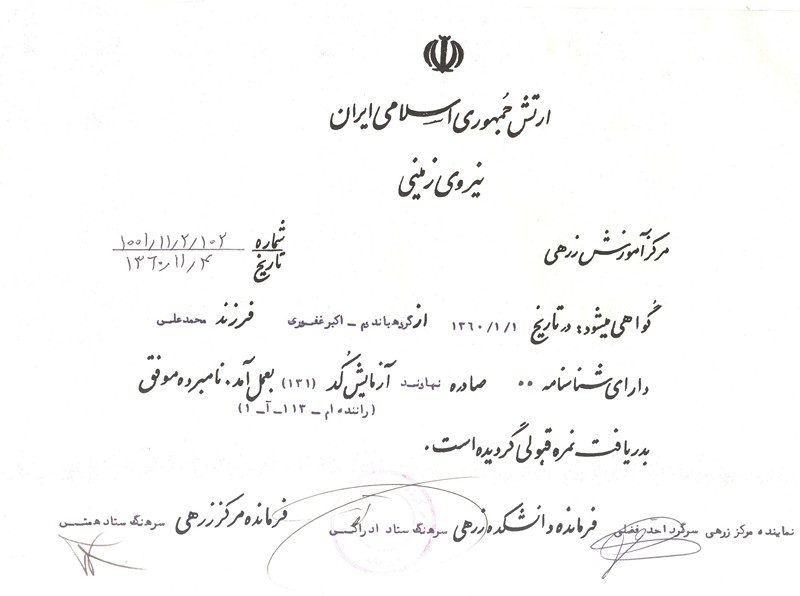 ارتش جمهوری اسلامی ایران
نیروی زمینی
مرکز آموزش زرهی
شماره ۱۰۰۱/۱۱/۲/۱۰۲
تاریخ ۱۳۶۰/۱۱/۴
گواهی میشود: در تاریخ ۱۳۶۰/۱/۱ از گروهباندیم ـ اکبر غفوری فرزند محمدعلی
دارای شناسنامه ۰۰ صادره نهاوند آزمایش کُد (۱۳۱) بعمل آمد. نامبرده موفق
(راننده ام ـ ۱۱۳ـ آ ـ ۱)
بدریافت نمره قبولی گردیده است.
نماینده مرکز زرهی سرگرد احد فضلی فرمانده دانشکده زرهی سرهنگ ستاد ادراکی فرمانده مرکز زرهی سرهنگ ستاد همتی